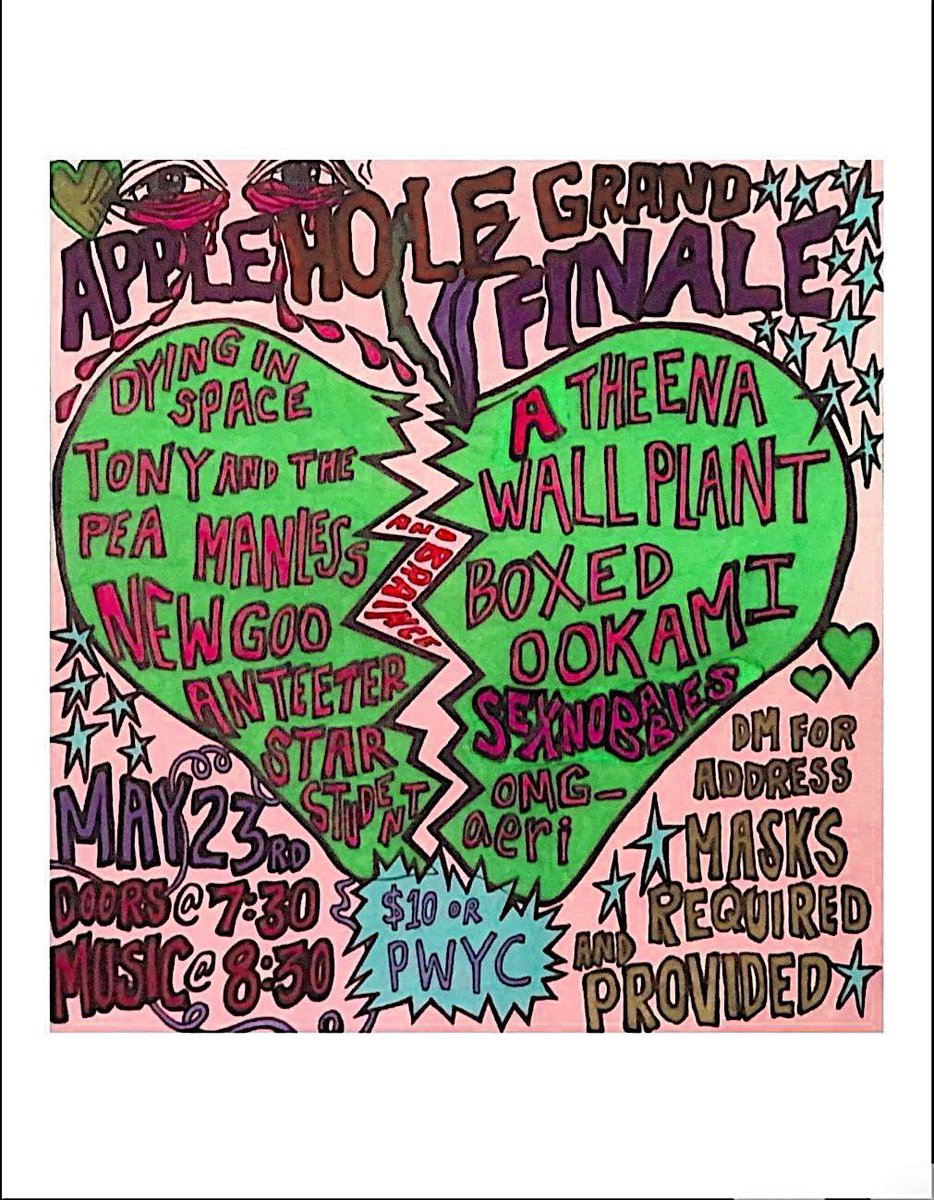 APPLEHOLE GRAND
FINALE
DYING IN
SPACE
TONY AND THE
PEA MANLESS
NEW GOO
ANTEETER
STAR
STUDENT
AND
BRAINCE
A THEENA
WALLPLANT
BOXED
OOKAMI
SEXNOBABIES
OMG-
aeri
MAY 23RD
DOORS @ 7:30
MUSIC @ 8:30
$10 OR
PWYC
DM FOR
ADDRESS
MASKS
REQUIRED
AND
PROVIDED